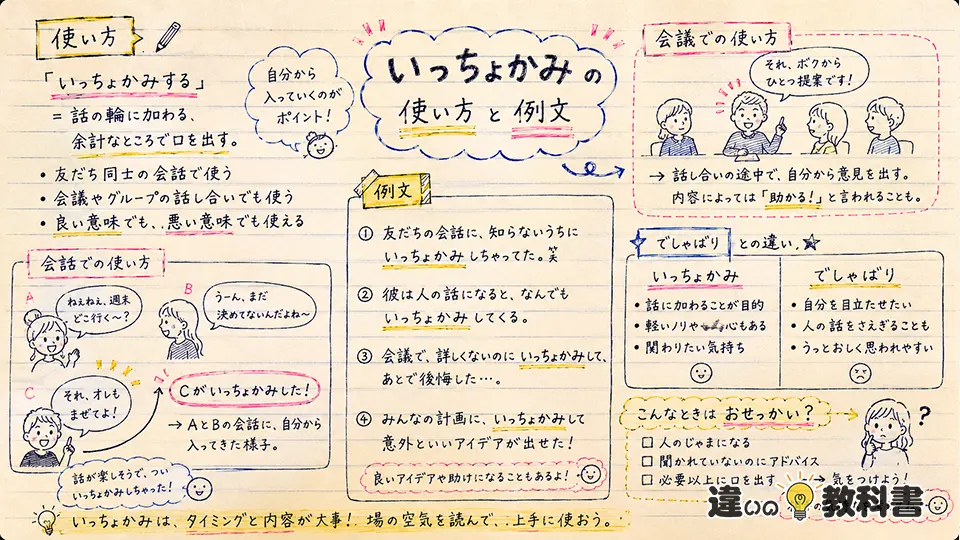 いっちょかみの
使い方と例文
使い方
「いっちょかみする」
= 話の輪に加わる、
余計なところで口を出す。
• 友だち同士の会話で使う
• 会議やグループの話し合いでも使う
• 良い意味でも、..悪い意味でも使える
自分から
入っていくのが
ポイント!
会話での使い方
A
ねぇねぇ、週末
どこ行く〜?
B
うーん、まだ
決めてないんだよね〜
C
それ、オレも
まぜてよ!
Cがいっちょかみした!
→ AとBの会話に、自分から
入ってきた様子。
話が楽しそうで、つい
いっちょかみしちゃった!
例文
① 友だちの会話に、知らないうちに
いっちょかみしちゃってた。笑
② 彼は人の話になると、なんでも
いっちょかみしてくる。
③ 会議で、詳しくないのにいっちょかみして、
あとで後悔した…。
④ みんなの計画に、いっちょかみして
意外といいアイデアが出せた!
良いアイデアや助けになることもあるよ!
会議での使い方
それ、ボクから
ひとつ提案です!
→ 話し合いの途中で、自分から意見を出す。
内容によっては「助かる!」と言われることも。
でしゃばり との違い
いっちょかみ
• 話に加わることが目的
• 軽いノリや心もある
• 関わりたい気持ち
でしゃばり
• 自分を目立たせたい
• 人の話をさえぎることも
• うっとおしく思われやすい
こんなときは おせっかい?
?
□ 人のじゃまになる
□ 聞かれていないのにアドバイス
□ 必要以上に口を出す → 気をつけよう!
いっちょかみは、タイミングと内容が大事! 場の空気を読んで、..上手に使おう。
違いの教科書